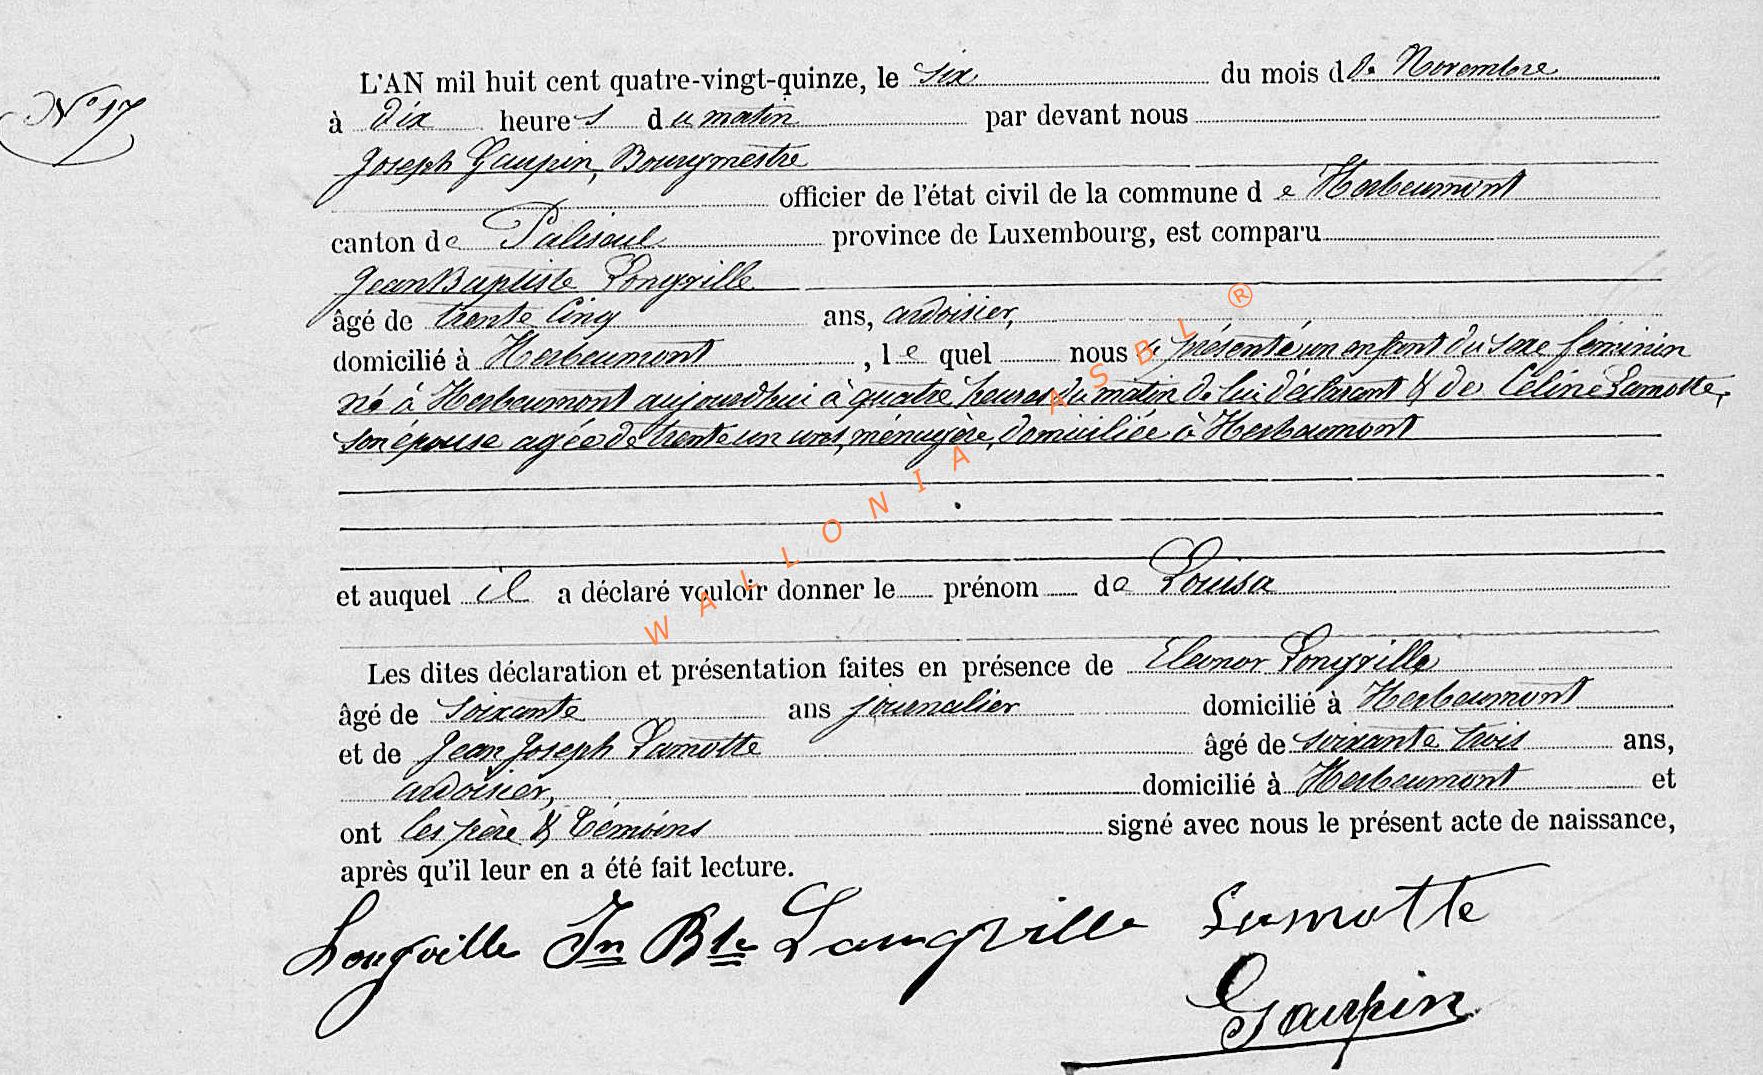 N° 17
L'AN mil huit cent quatre-vingt-quinze, le six du mois de Novembre
à dix heures du matin par devant nous
Joseph Gaupin, Bourgmestre
officier de l'état civil de la commune de Herbeumont
canton de Paliseul province de Luxembourg, est comparu
Jean Baptiste Longville
âgé de trente cinq ans, ardoisier,
domicilié à Herbeumont, lequel nous a présenté un enfant du sexe féminin
né à Herbeumont aujourdhui à quatre heures du matin de lui déclarant & de Céline Lamotte,
son épouse agée de trente un ans, ménagère, domiciliée à Herbeumont
et auquel il a déclaré vouloir donner le prénom de Louisa
Les dites déclaration et présentation faites en présence de Eleonor Longville
âgé de soixante ans journalier domicilié à Herbeumont
et de Jean Joseph Lamotte âgé de soixante trois ans,
ardoisier, domicilié à Herbeumont et
ont les père & témoins signé avec nous le présent acte de naissance,
après qu'il leur en a été fait lecture.
Longville Jn Bte Longville Lamotte
Gaupin
WALLONIA ASBL ®